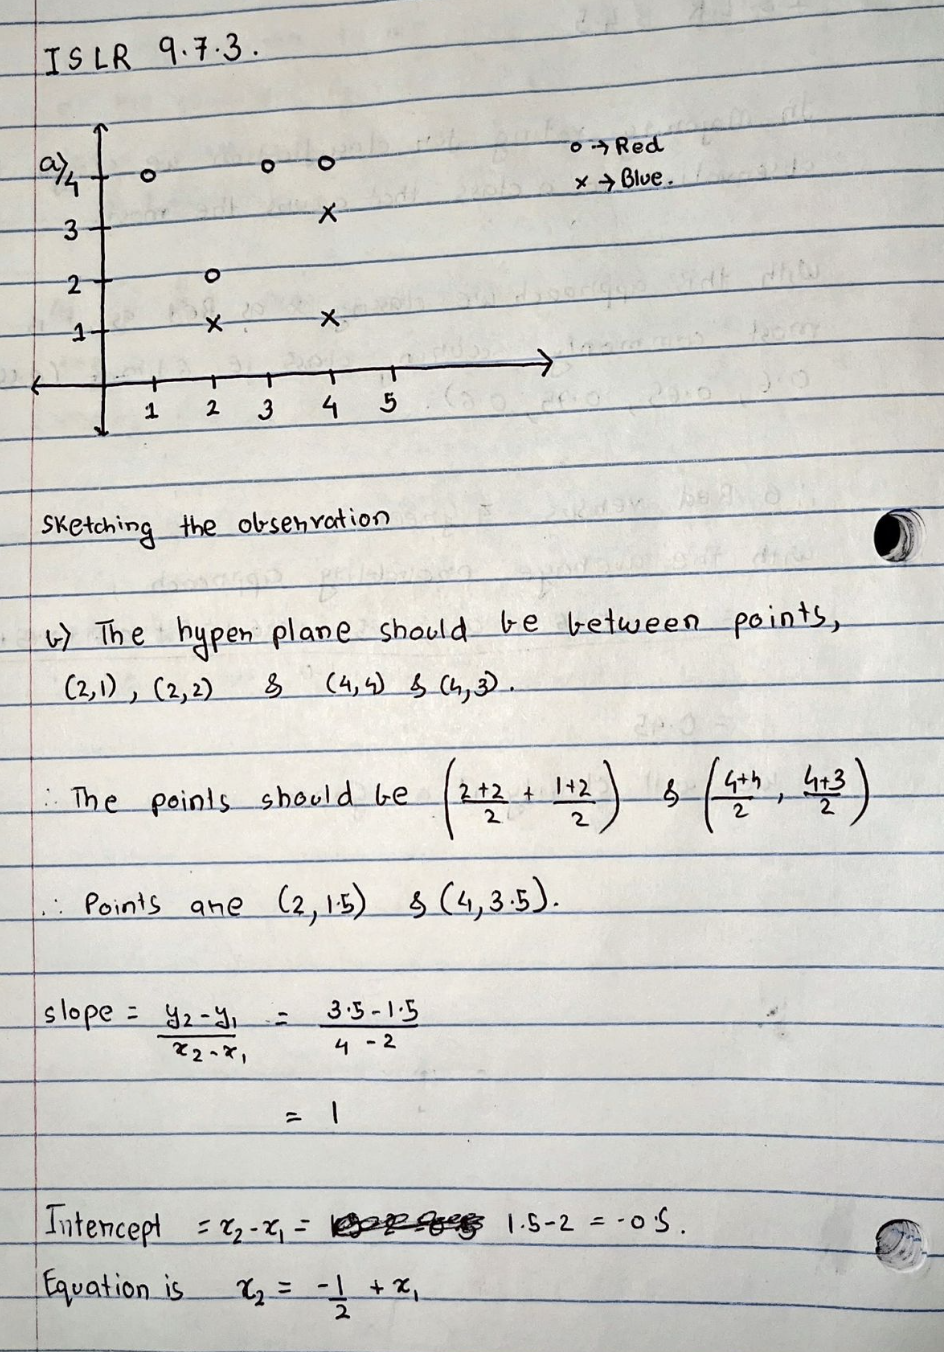 ISLR 9.7.3.
a) 4
o → Red
x → Blue.
3
2
1
1 2 3 4 5
Sketching the observation
b) The hyper plane should be between points,
(2,1), (2,2) & (4,4) & (4,3).
∴ The points should be (2+2/2 + 1+2/2) & (4+4/2, 4+3/2)
∴ Points are (2,1.5) & (4,3.5).
slope = y₂-y₁/x₂-x₁ = 3.5-1.5/4-2
= 1
Intercept = x₂-x₁ = 1.5-2 = -0.5.
Equation is x₂ = -1/2 + x₁